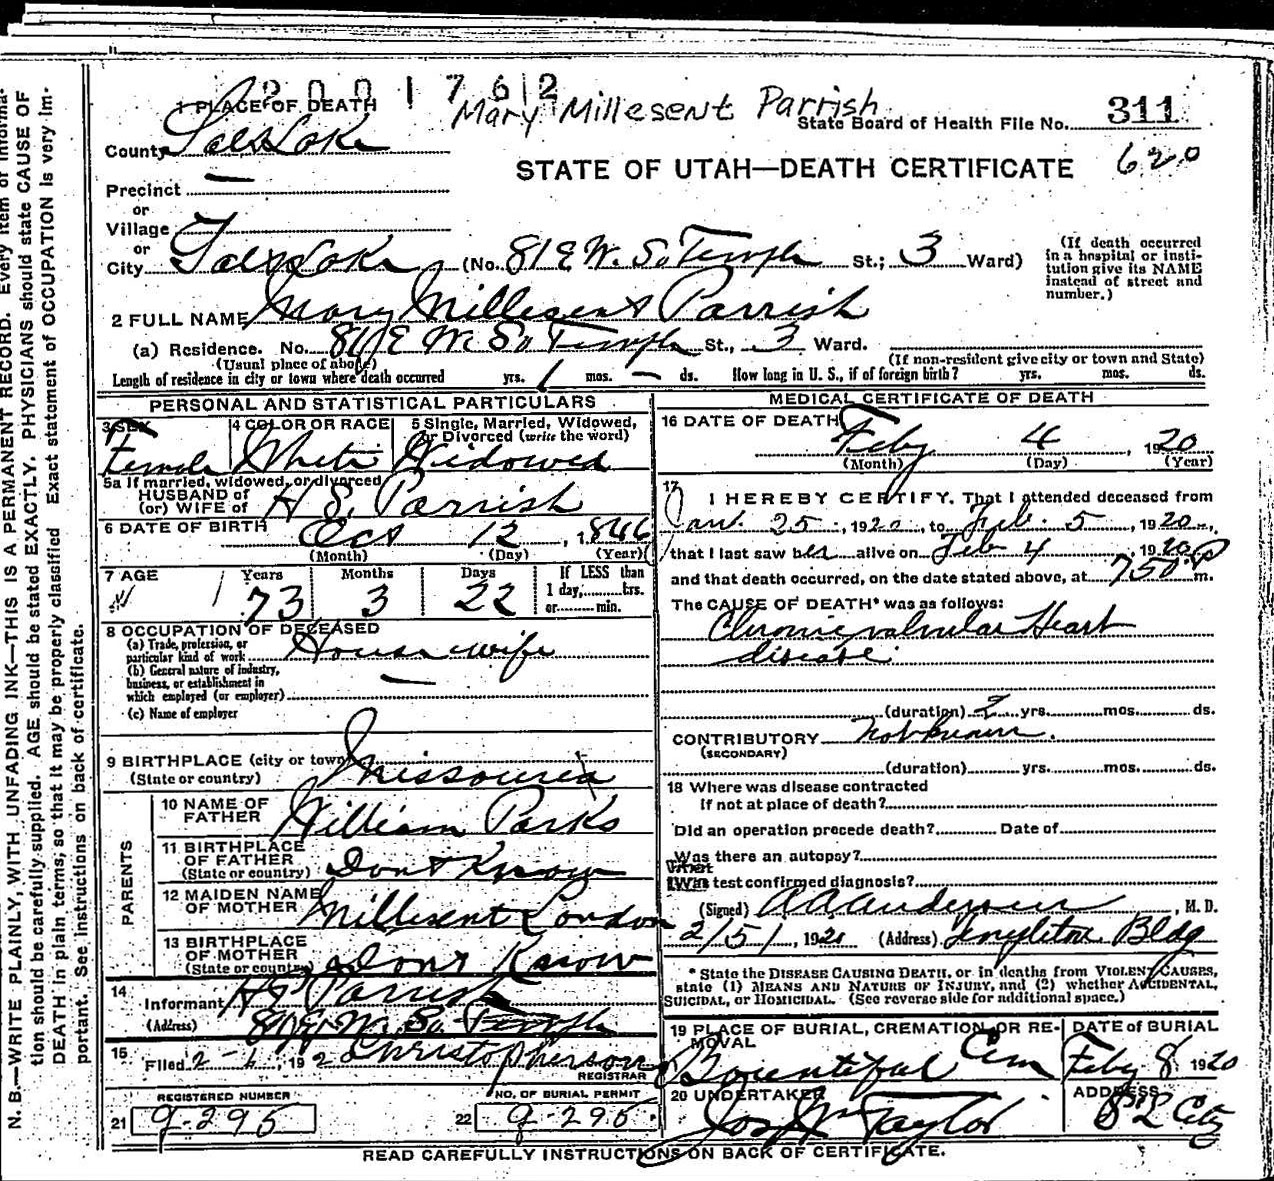 2001762
Mary Millesent Parrish
1 PLACE OF DEATH
State Board of Health File No. 311
County Salt Lake
STATE OF UTAH—DEATH CERTIFICATE 620
Precinct —
or
Village
or
City Salt Lake (No. 81 E W. So Temple St.; 3 Ward)
(If death occurred in a hospital or institution give its NAME instead of street and number.)
2 FULL NAME Mary Millesent Parrish
(a) Residence. No. W. So Temple St., 3 Ward.
(Usual place of abode) (If non-resident give city or town and State)
Length of residence in city or town where death occurred yrs. 1 mos. — ds. How long in U. S., if of foreign birth? yrs. mos. ds.
PERSONAL AND STATISTICAL PARTICULARS
3 SEX Female
4 COLOR OR RACE White
5 Single, Married, Widowed, or Divorced (write the word) Widowed
5a If married, widowed, or divorced
HUSBAND of
(or) WIFE of H S. Parrish
6 DATE OF BIRTH Oct 12, 1846
(Month) (Day) (Year)
7 AGE Years 73 Months 3 Days 22 If LESS than 1 day, hrs. or min.
8 OCCUPATION OF DECEASED
(a) Trade, profession, or particular kind of work House wife
(b) General nature of industry, business, or establishment in which employed (or employer) —
(c) Name of employer
9 BIRTHPLACE (city or town) Missouri
(State or country)
PARENTS
10 NAME OF FATHER William Parks
11 BIRTHPLACE OF FATHER (State or country) Dont Know
12 MAIDEN NAME OF MOTHER Millesent London
13 BIRTHPLACE OF MOTHER (State or country) Dont Know
14 Informant Parrish
(Address) W. So Temple
15 Filed 2-4, 192 Christopherson
REGISTRAR
REGISTERED NUMBER
21 g-295
NO. OF BURIAL PERMIT
22 g-295
MEDICAL CERTIFICATE OF DEATH
16 DATE OF DEATH Feby 4, 1920
(Month) (Day) (Year)
17 I HEREBY CERTIFY, That I attended deceased from
Jan. 25, 1920, to Feb. 5, 1920,
that I last saw her alive on Feb 4, 1920
and that death occurred, on the date stated above, at 750 P m.
The CAUSE OF DEATH* was as follows:
Chronic valvular Heart
disease.
(duration) 2 yrs. mos. ds.
CONTRIBUTORY Not known.
(SECONDARY)
(duration) yrs. mos. ds.
18 Where was disease contracted
if not at place of death?
Did an operation precede death? Date of
Was there an autopsy?
What test confirmed diagnosis?
(Signed) A A Anderson, M. D.
2/5/, 1920 (Address) Templeton Bldg
* State the DISEASE CAUSING DEATH, or in deaths from VIOLENT CAUSES, state (1) MEANS AND NATURE OF INJURY, and (2) whether ACCIDENTAL, SUICIDAL, or HOMICIDAL. (See reverse side for additional space.)
19 PLACE OF BURIAL, CREMATION, OR REMOVAL Bountiful Cem
DATE of BURIAL Feby 8 1920
20 UNDERTAKER Jos Wm Taylor
ADDRESS S L City
READ CAREFULLY INSTRUCTIONS ON BACK OF CERTIFICATE.
N. B.—WRITE PLAINLY, WITH UNFADING INK—THIS IS A PERMANENT RECORD. Every item of informa-
tion should be carefully supplied. AGE should be stated EXACTLY. PHYSICIANS should state CAUSE OF
DEATH in plain terms, so that it may be properly classified Exact statement of OCCUPATION is very im-
portant. See instructions on back of certificate.